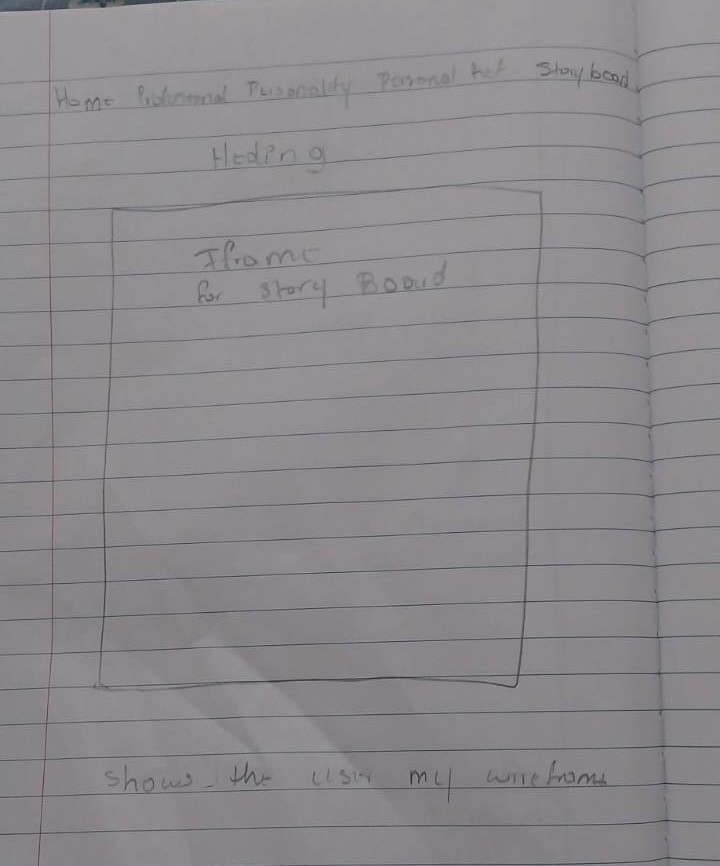 Home Professional Personality Personal Storyboard
Heding
Iframe
for Story Board
Shows the user my wireframe